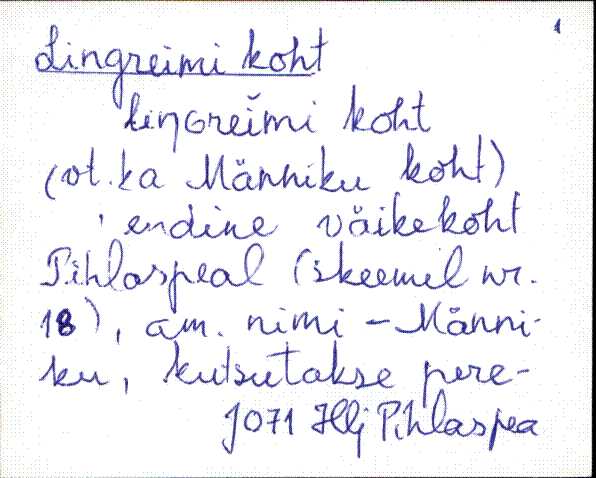 1
Lingreimi koht
liŋGreĭmi koht
(vt. ka Männiku koht)
endine väikekoht
Pihlaspeal (skeemil nr.
18), am. nimi – Männi-
ku, kutsutakse pere-
J071 Hlj Pihlaspea